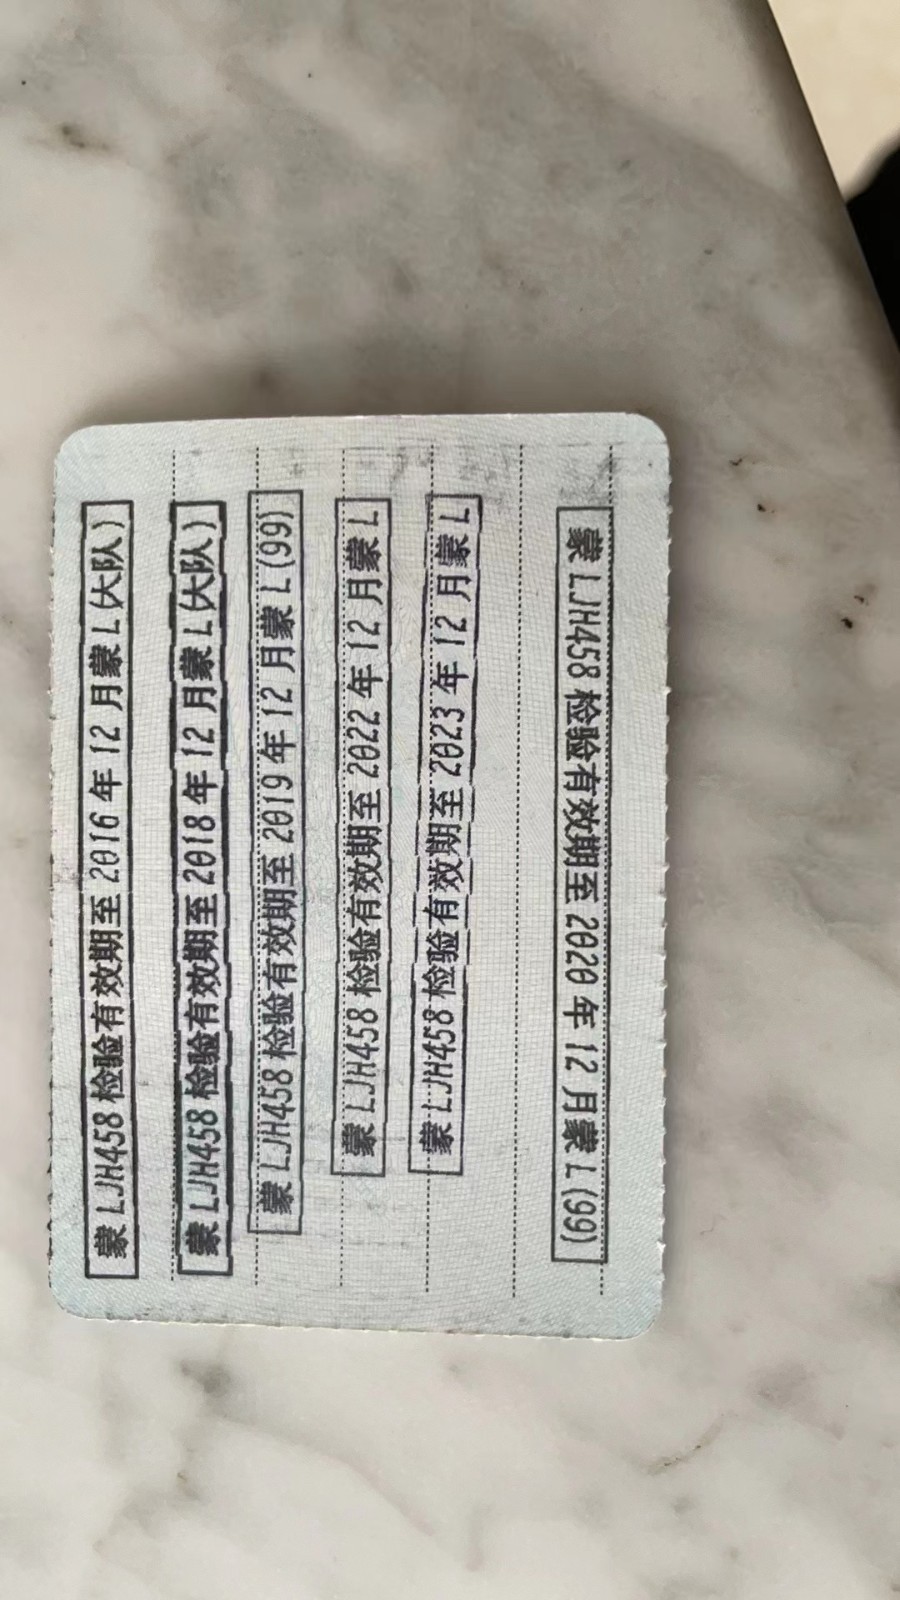 蒙LJH458检验有效期至2016年12月蒙L(大队)
蒙LJH458检验有效期至2018年12月蒙L(大队)
蒙LJH458检验有效期至2019年12月蒙L(99)
蒙LJH458检验有效期至2022年12月蒙L
蒙LJH458检验有效期至2023年12月蒙L
蒙LJH458检验有效期至2020年12月蒙L(99)